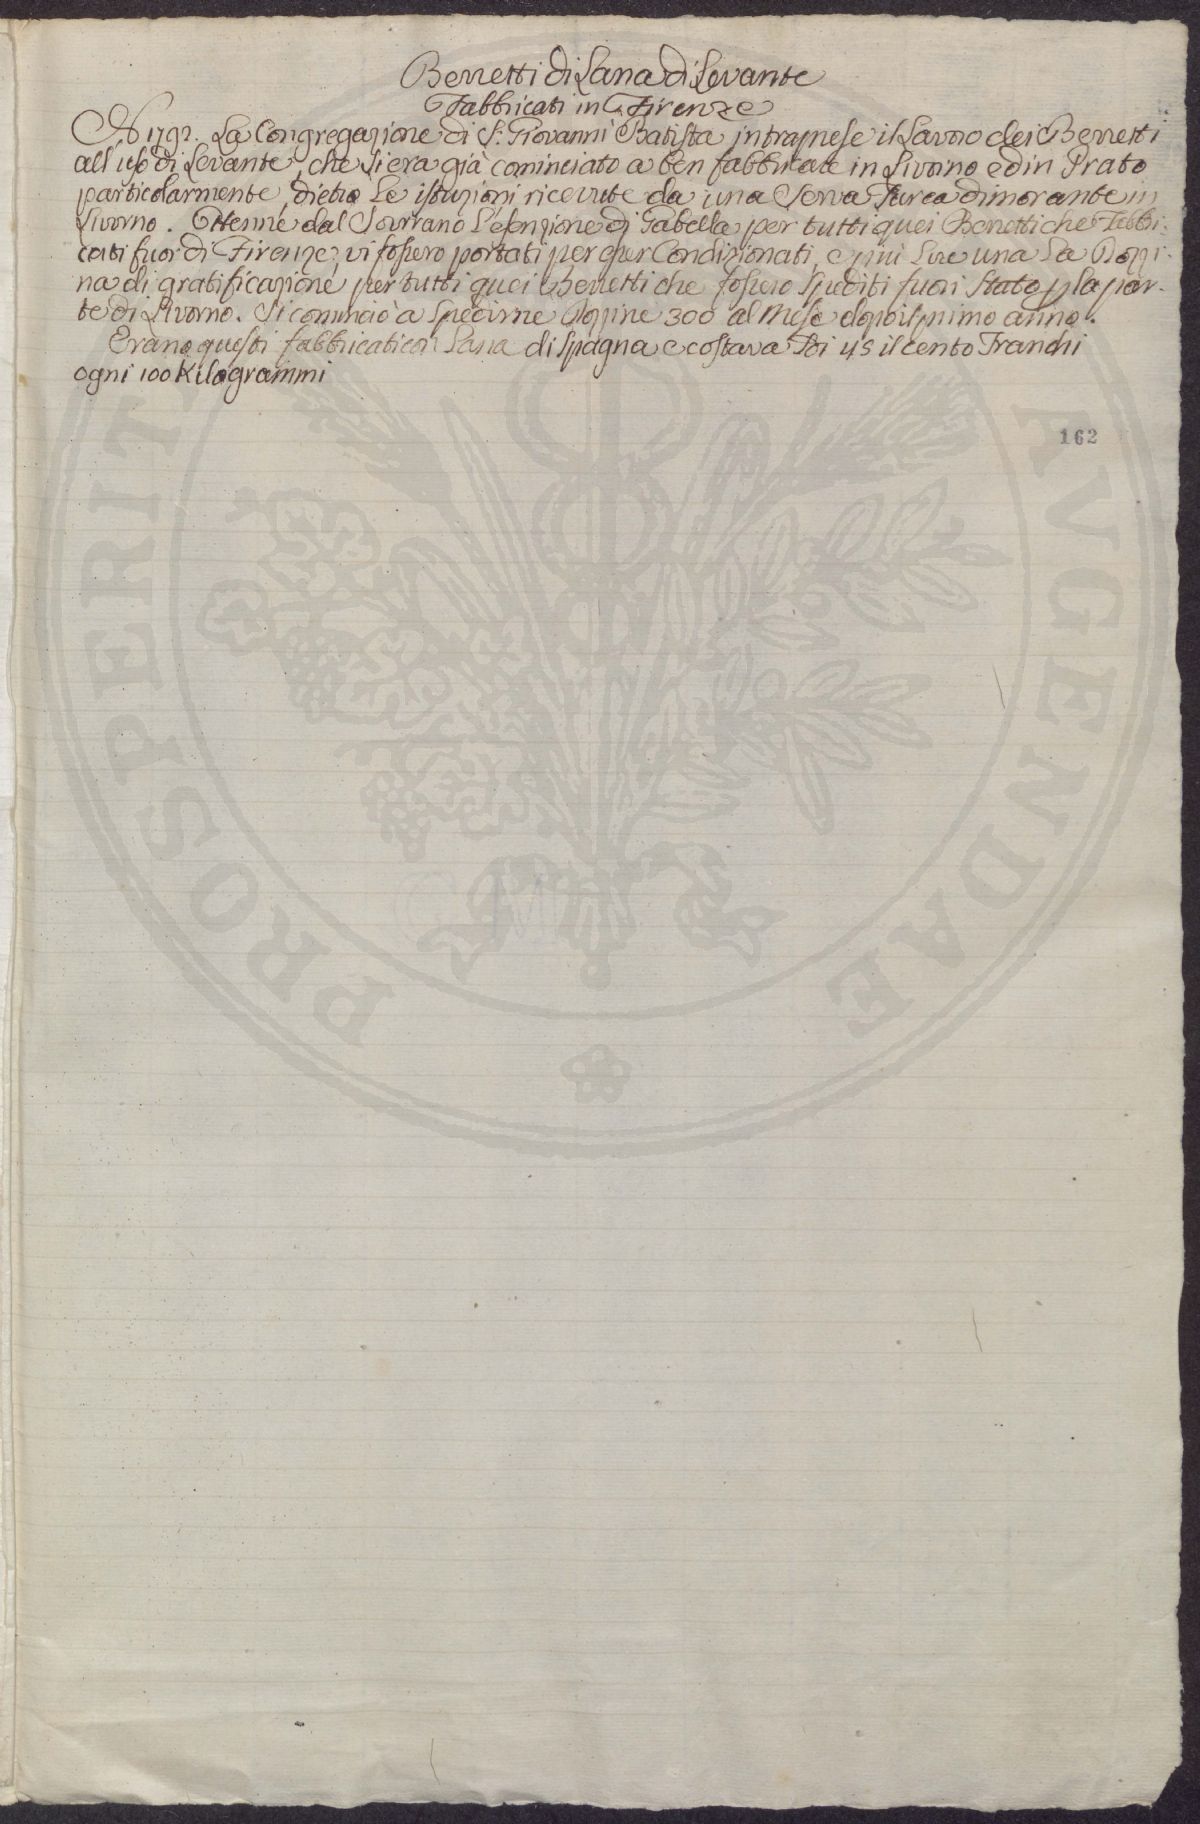 Berretti di Lana di Levante
Fabbricati in Firenze
Aº 1792. La Congregazione di S. Giovanni Batista intraprese il Lavoro dei Berretti
all'uso di Levante, che si era già cominciato a ben fabbricare in Livorno ed in Prato
particolarmente, dietro le istruzioni ricevute da una Serva Turca dimorante in
Livorno. Ottenne dal Sovrano l'esenzione di Gabella per tutti quei Berretti che Fabbri-
cati fuor di Firenze, vi fossero portati per esser Condizionati, e più Lire una La Dozzi-
na di gratificazione per tutti quei Berretti che fossero Spediti fuori Stato p la par-
te di Livorno. Si cominciò a Spedirne Dozzine 300 al Mese dopo il primo anno.
Erano questi fabbricati con Lana di Spagna e costava Poi 45 il cento Franchi
ogni 100 Kilogrammi
162
PROSPERITATI AVGENDAE